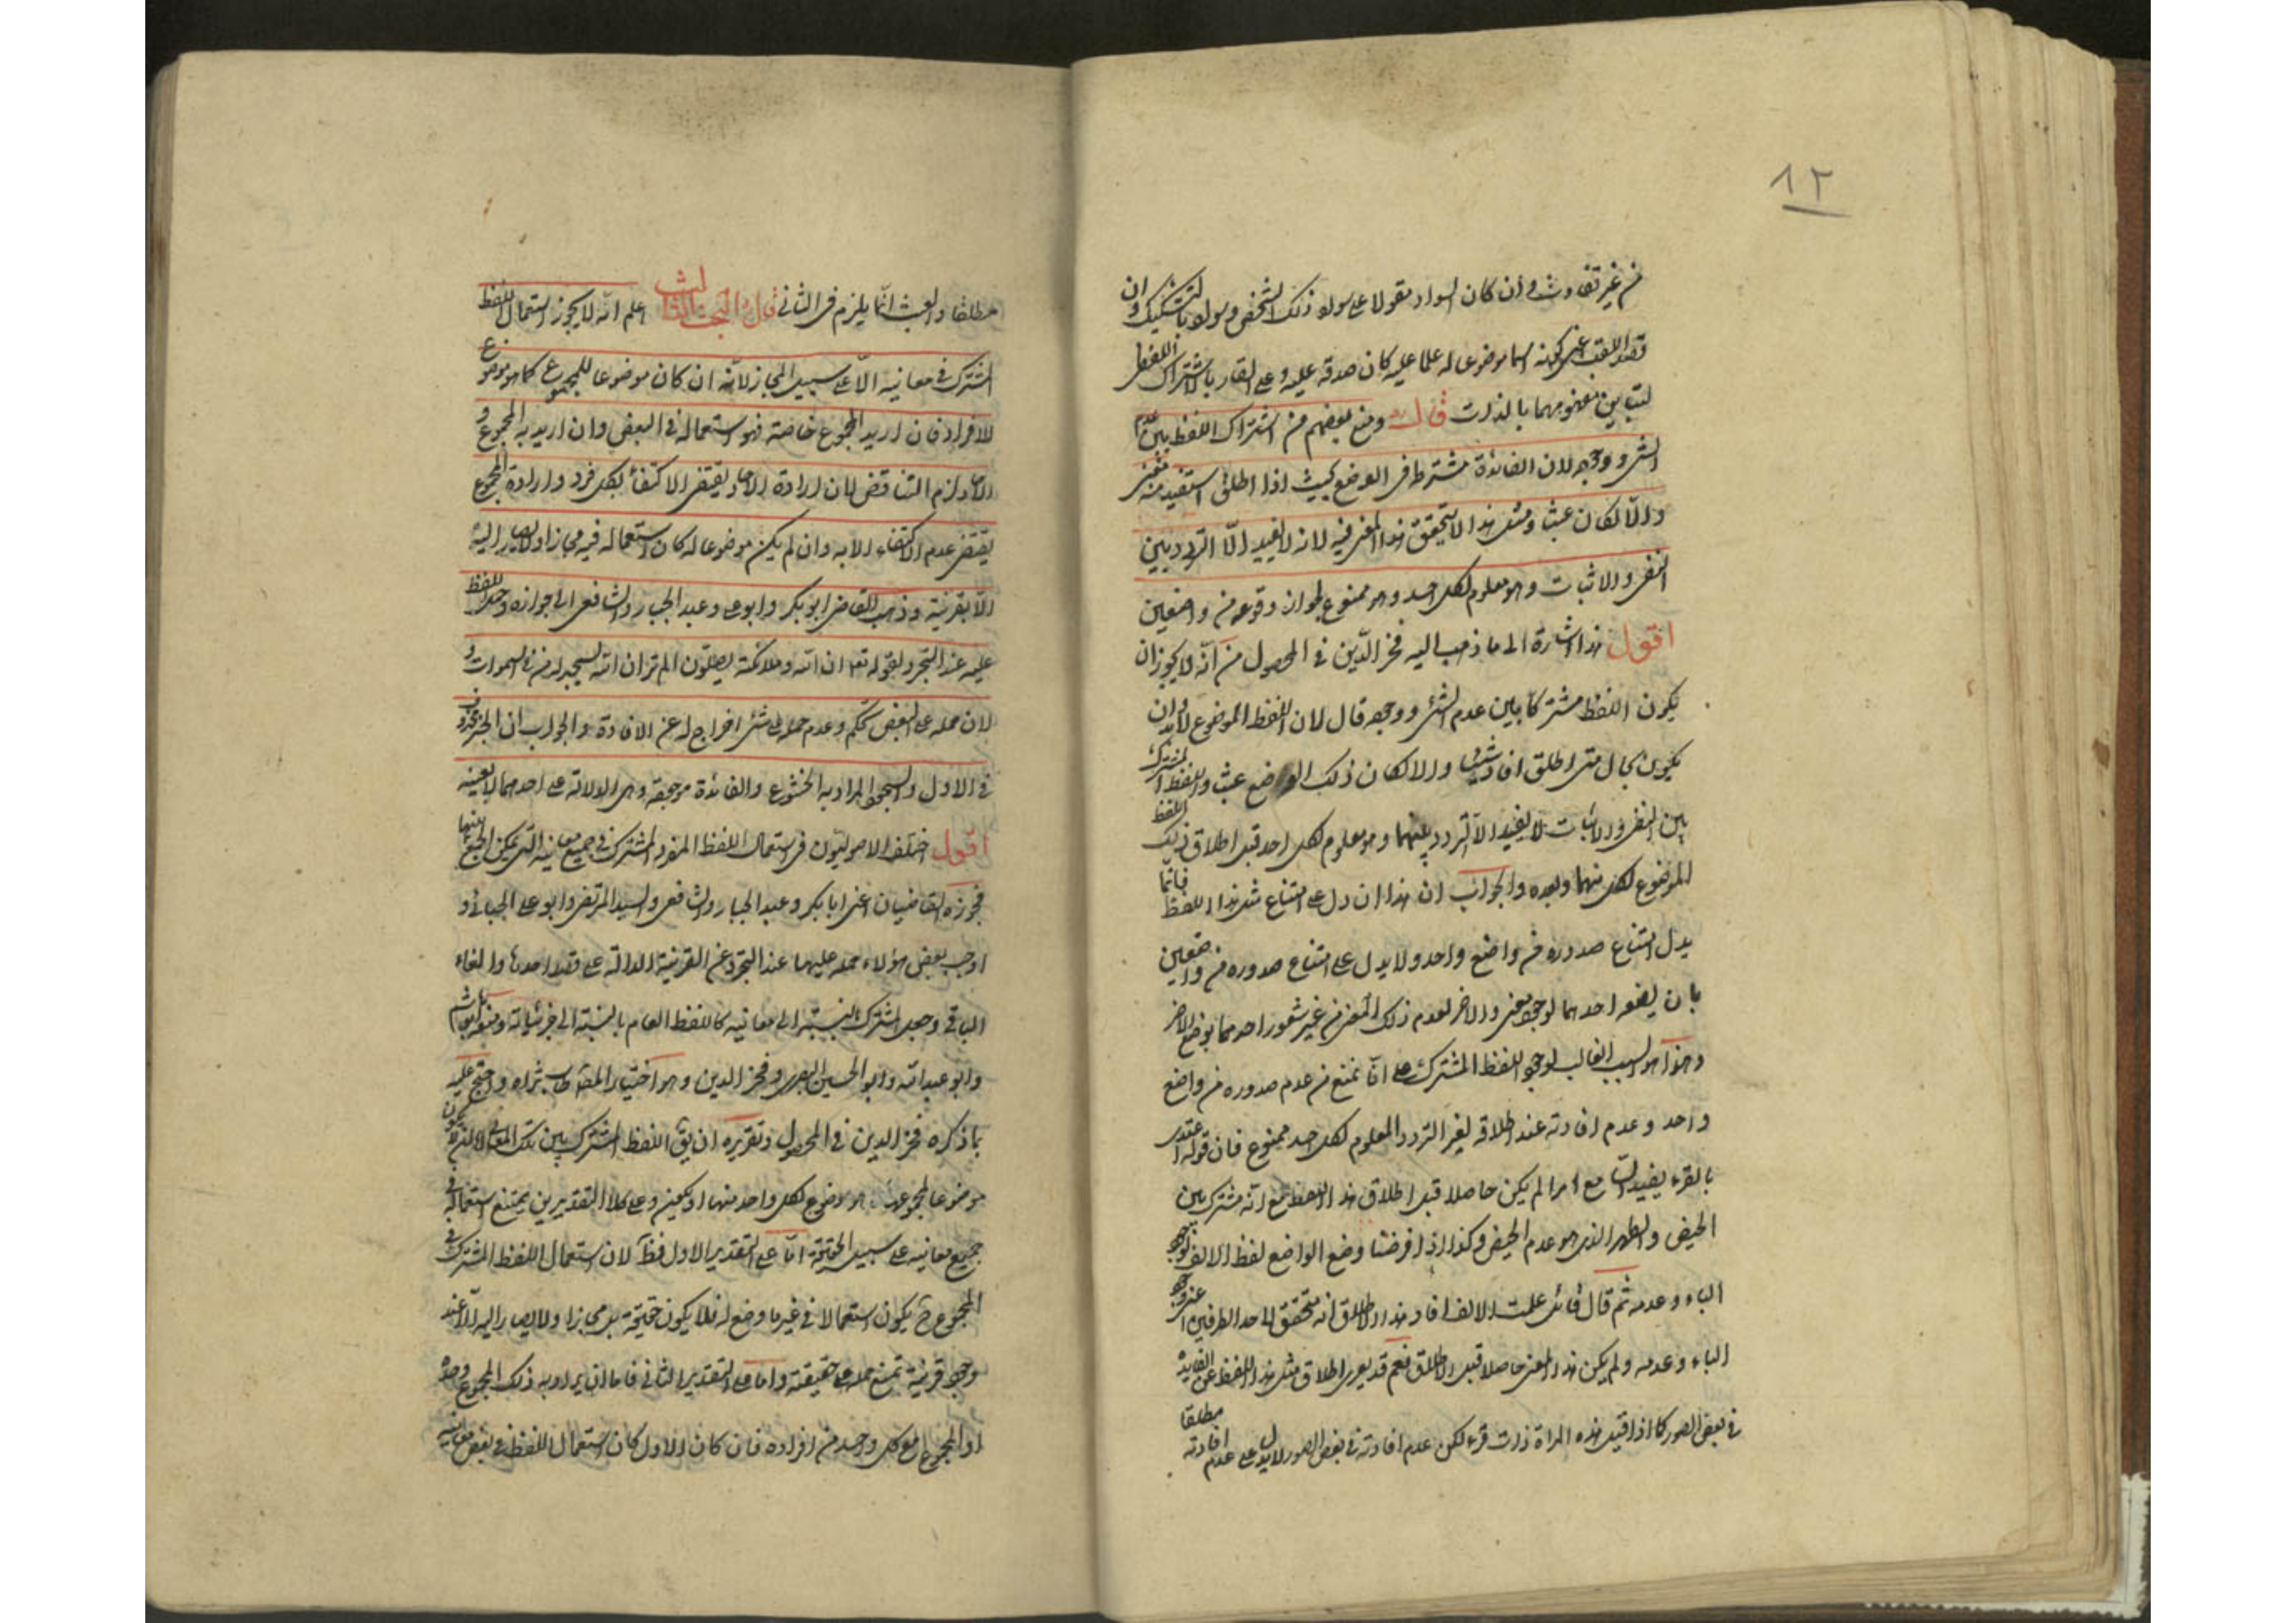 ١٢
من غير تفاوت وأن كان السواد مقولا على سواد ذلك الشخص وسواد بالتشكيك وان
قصد اللقب اعنى كونه اسما موضوعا له علما عليه كان صدقه عليه وعلى القار بالاشتراك اللفظى
لتباين مفهوميهما بالذات قال ومنع بعضهم من اشتراك اللفظ بين عدم
الشئ ووجوده لان الفائدة مشترطة فى الوضع بحيث اذا اطلق استفيد منه معنى
والا لكان عبثا ومثل هذا لا يتحقق هذا المعنى فيه لانه لا يفيد الا التردد بين
النفى والاثبات وهو معلوم لكل احد وهو ممنوع لجواز وقوعه من واضعين
اقول هذا اشارة الى ما ذهب اليه فخر الدين فى المحصول من انه لا يجوز ان
يكون اللفظ مشتركا بين عدم الشئ ووجوده قال لان اللفظ الموضوع لابد وان
يكون بحال متى اطلق افاد شيئا والا لكان ذلك الوضع عبثا واللفظ المشترك
بين النفى والاثبات لا يفيد الا التردد بينهما وهو معلوم لكل احد قبل اطلاق ذلك اللفظ
الموضوع لكل منهما وبعده والجواب ان هذا ان دل على امتناع مثل هذا اللفظ فانما
يدل امتناع صدوره من واضع واحد ولا يدل على امتناع صدوره من واضعين
بان يضعه احدهما لوجود معنى والاخر لعدم ذلك المعنى من غير شعور احدهما بوضع الاخر
وهذا هو السبب الغالب لوجود اللفظ المشترك على انا نمنع من عدم صدوره من واضع
واحد وعدم افادته عند اطلاقه لغير التردد المعلوم لكل احد ممنوع فان قوله اعتدى
بالقرء يفيد السامع امرا لم يكن حاصلا قبل اطلاق هذا اللفظ مع انه مشترك بين
الحيض والطهر الذى هو عدم الحيض وكذا اذا فرضنا وضع الواضع لفظ الالف لوجود
الباء وعدمه ثم قال قائل علمت الالف افاد هذا الاطلاق انه متحقق لاحد الطرفين اعنى وجود
الباء وعدمه ولم يكن هذا المعنى حاصلا قبل الاطلاق نعم قد يعرى اطلاق مثل هذا اللفظ عن الفايدة
فى بعض الصور كما اذا قيل هذه المراة ذات قرء لكن عدم افادته فى بعض الصور لا يدل على عدم افادته مطلقا
مطلقا والعبث انما يلزم فى الثانى قال البحث الثالث اعلم انه لا يجوز استعمال اللفظ
المشترك فى معانيه الا على سبيل المجاز لانه ان كان موضوعا للمجموع كما هو موضوع
للافراد فان اريد المجموع خاصة فهو استعماله فى البعض وان اريد به المجموع و
الافراد لزم التناقض لان ارادة الافراد يقتضى الاكتفاء بكل فرد وارادة المجموع
يقتضى عدم الاكتفاء الا به وان لم يكن موضوعا له كان استعماله فيه مجازا ولا يصار اليه
الا بقرينة وذهب القاضى ابو بكر وابو على وعبد الجبار والشافعى الى جوازه وحمل اللفظ
عليه عند التجرد لقوله تعم ان الله وملائكته يصلون الم تر ان الله يسجد له من فى السموات و
لان حمله على البعض تحكم وعدم حمله على شئ اخراج له عن الافادة والجواب ان الخبر محذوف
فى الاول والسجود المراد به الخشوع والفائدة موجودة وهى الدلالة على احدهما لا بعينه
اقول اختلف الاصوليون فى استعمال اللفظ المفرد المشترك فى جميع معانيه التى يمكن الجمع بينها
فجوزه القاضيان اعنى ابا بكر وعبد الجبار والشافعى والسيد المرتضى وابو على الجبائى و
اوجب بعض هؤلاء حمله عليهما عند التجرد عن القرينة الدالة على قصد احدها والغاء
الباقى وجعل المشترك بالنسبة الى معانيه كاللفظ العام بالنسبة الى جزئياته ومنعه ابو هاشم
وابو عبد الله وابو الحسين البصرى وفخر الدين وهو اختيار المصـ طاب ثراه واحتج عليه
بما ذكره فخر الدين فى المحصول وتقريره ان يق اللفظ المشترك بين تلك المعانى المفردة اما ان يكون
موضوعا لمجموعها كما هو موضوع لكل واحد منها او لا يكون وعلى كلا التقديرين يمتنع استعماله فى
جميع معانيه على سبيل الحقيقة اما على التقدير الاول فظ لان استعمال اللفظ المشترك فى
المجموع ح يكون استعمالا فى غير ما وضع له فلا يكون حقيقة بل مجازا ولا يصار اليه الا عند
وجود قرينة تمنع حمله على حقيقته واما على التقدير الثانى فاما ان يراد به ذلك المجموع وحده
او المجموع مع كل واحد من افراده فان كان الاول كان استعمال اللفظ فى بعض معانيه